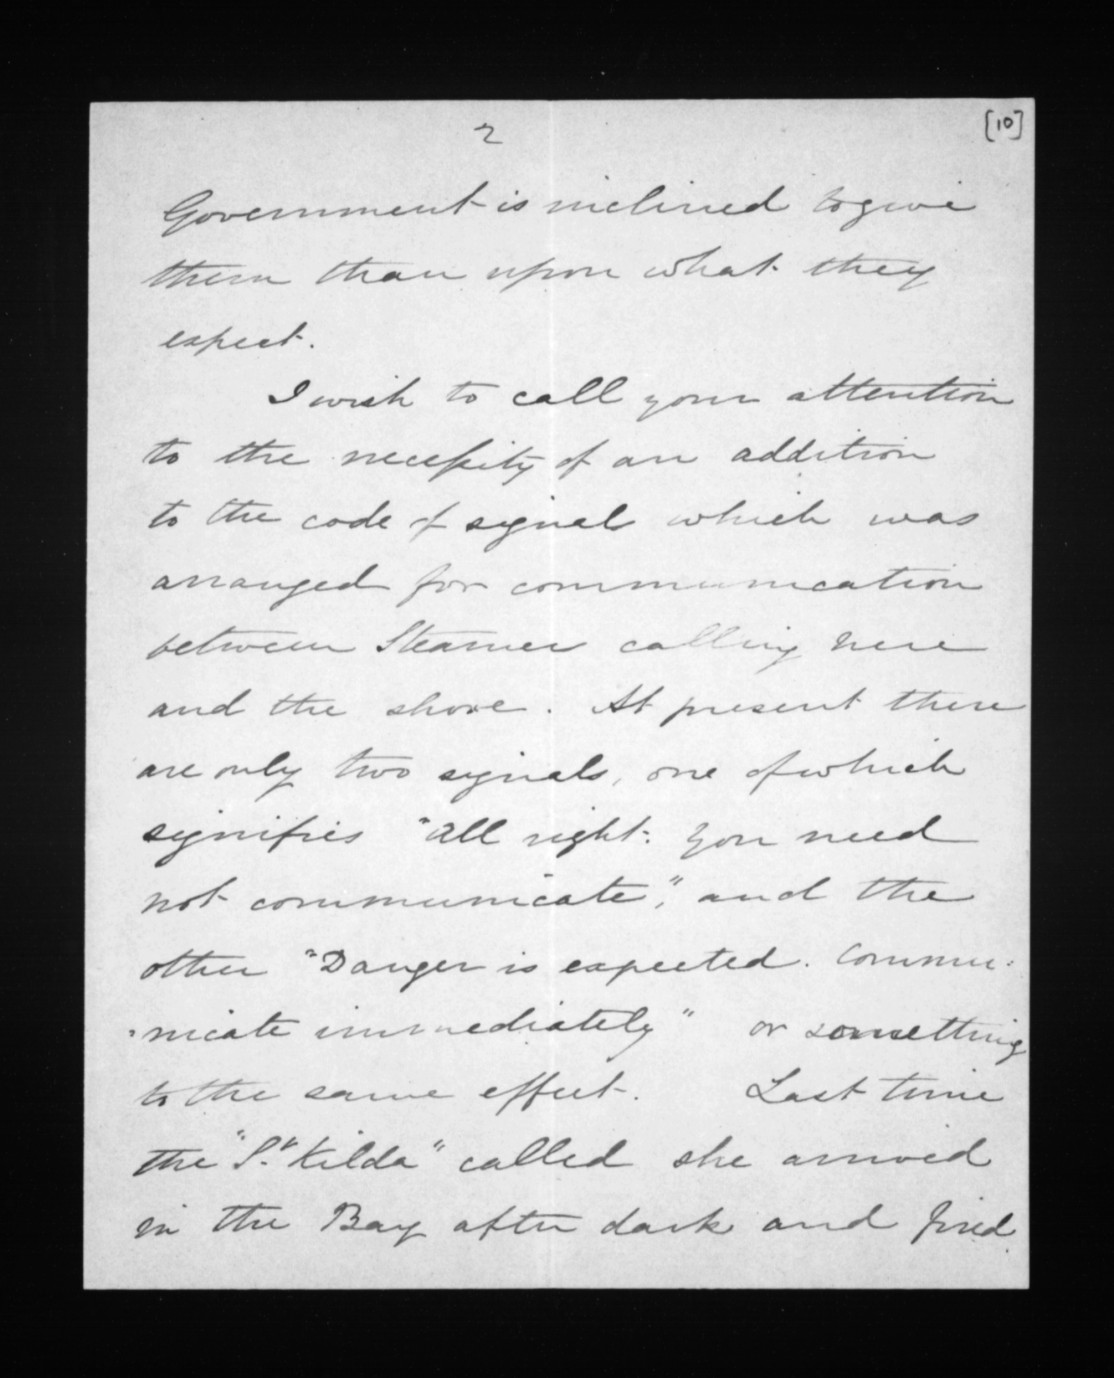 2
[10]
Government is inclined to give
them than upon what they
expect.
I wish to call your attention
to the necessity of an addition
to the code of signals which was
arranged for communication
between Steamer calling here
and the shore. At present there
are only two signals, one of which
signifies "All right. You need
not communicate", and the
other "Danger is expected. Commu:
:nicate immediately" or something
to the same effect. Last time
the "St. Kilda" called she arrived
in the Bay after dark and fired